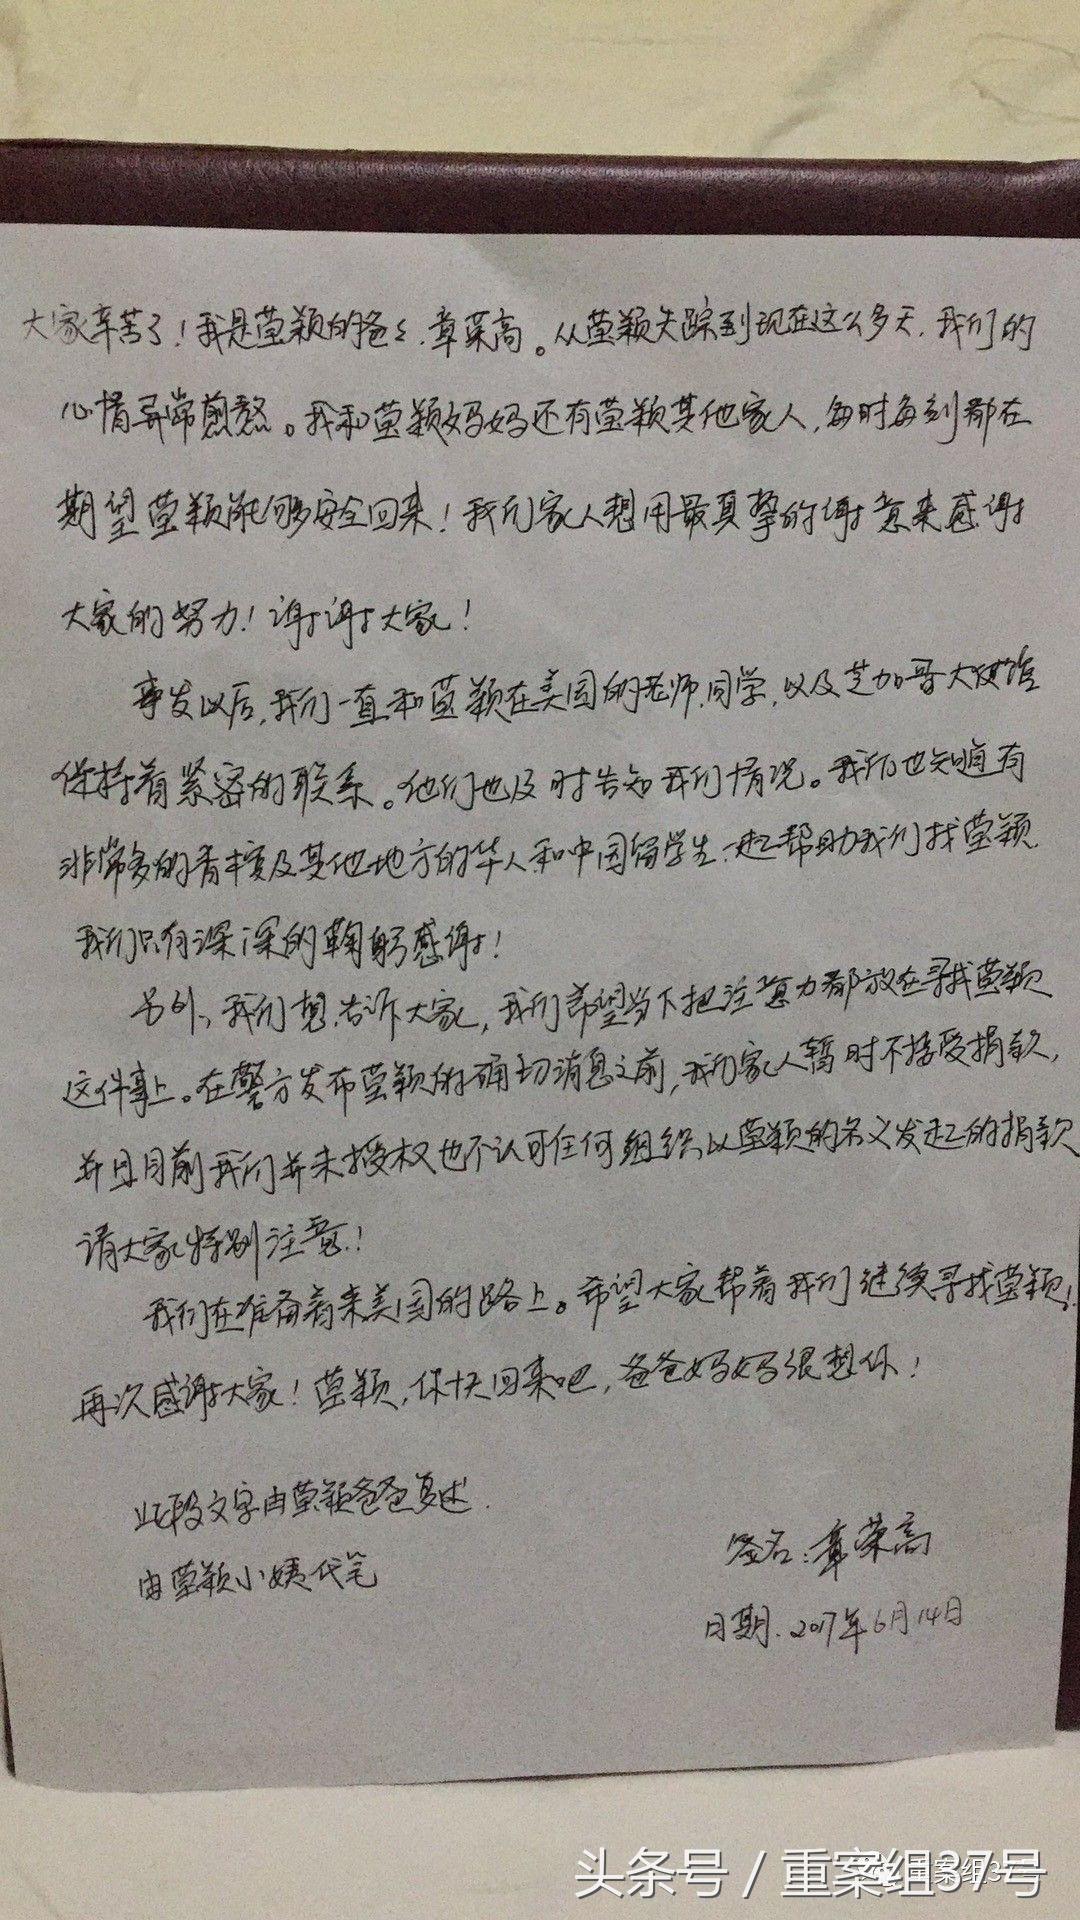 大家辛苦了！我是莹颖的爸爸,章荣高。从莹颖失踪到现在这么多天,我们的
心情异常煎熬。我和莹颖妈妈还有莹颖其他家人,每时每刻都在
期望莹颖能够安全回来！我们家人想用最真挚的谢意来感谢
大家的努力！谢谢大家！
事发以后,我们一直和莹颖在美国的老师,同学,以及芝加哥大使馆
保持着紧密的联系。他们也及时告知我们情况。我们也知道有
非常多的香槟及其他地方的华人和中国留学生一起帮助我们找莹颖.
我们只有深深的鞠躬感谢！
另外、我们想告诉大家,我们希望当下把注意力都放在寻找莹颖
这件事上。在警方发布莹颖的确切消息之前,我们家人暂时不接受捐款,
并且目前我们并未授权也不认可任何组织以莹颖的名义发起的捐款
请大家特别注意！
我们在准备着来美国的路上。希望大家帮着我们继续寻找莹颖！
再次感谢大家！莹颖,你快回来吧,爸爸妈妈很想你！
此段文字由莹颖爸爸复述.
由莹颖小姨代笔
签名:章荣高
日期.2017年6月14日
头条号 / 重案组37号
重案组37